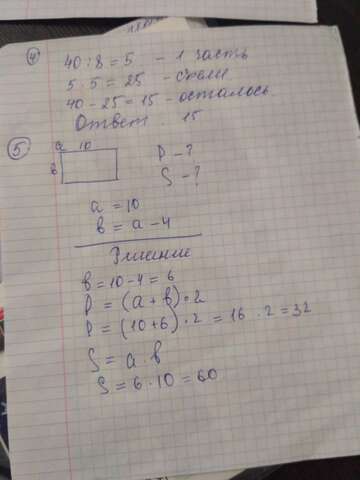 4
40 : 8 = 5 - 1 часть
5 · 5 = 25 - съели
40 - 25 = 15 - осталось
Ответ: 15
5
a 10
в
P - ?
S - ?
a = 10
в = a - 4
Решение
в = 10 - 4 = 6
P = (a + в) · 2
P = (10 + 6) · 2 = 16 · 2 = 32
S = a · в
S = 6 · 10 = 60